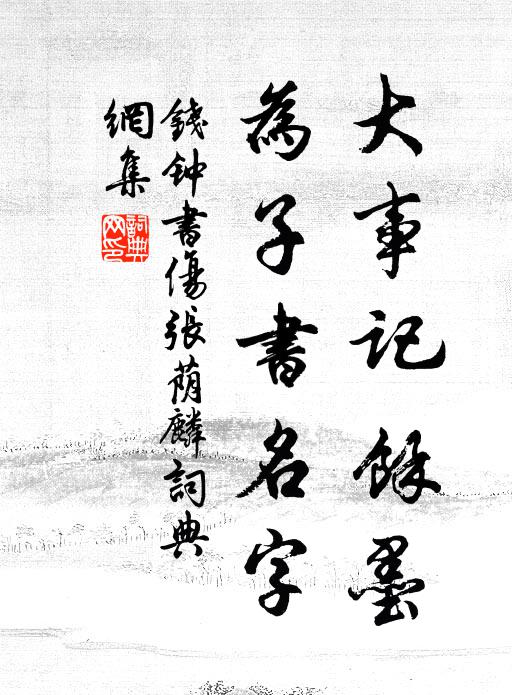 大事記餘墨
為子書名字
錢钟書傷張荫麟詞典
網集
詞典
网印